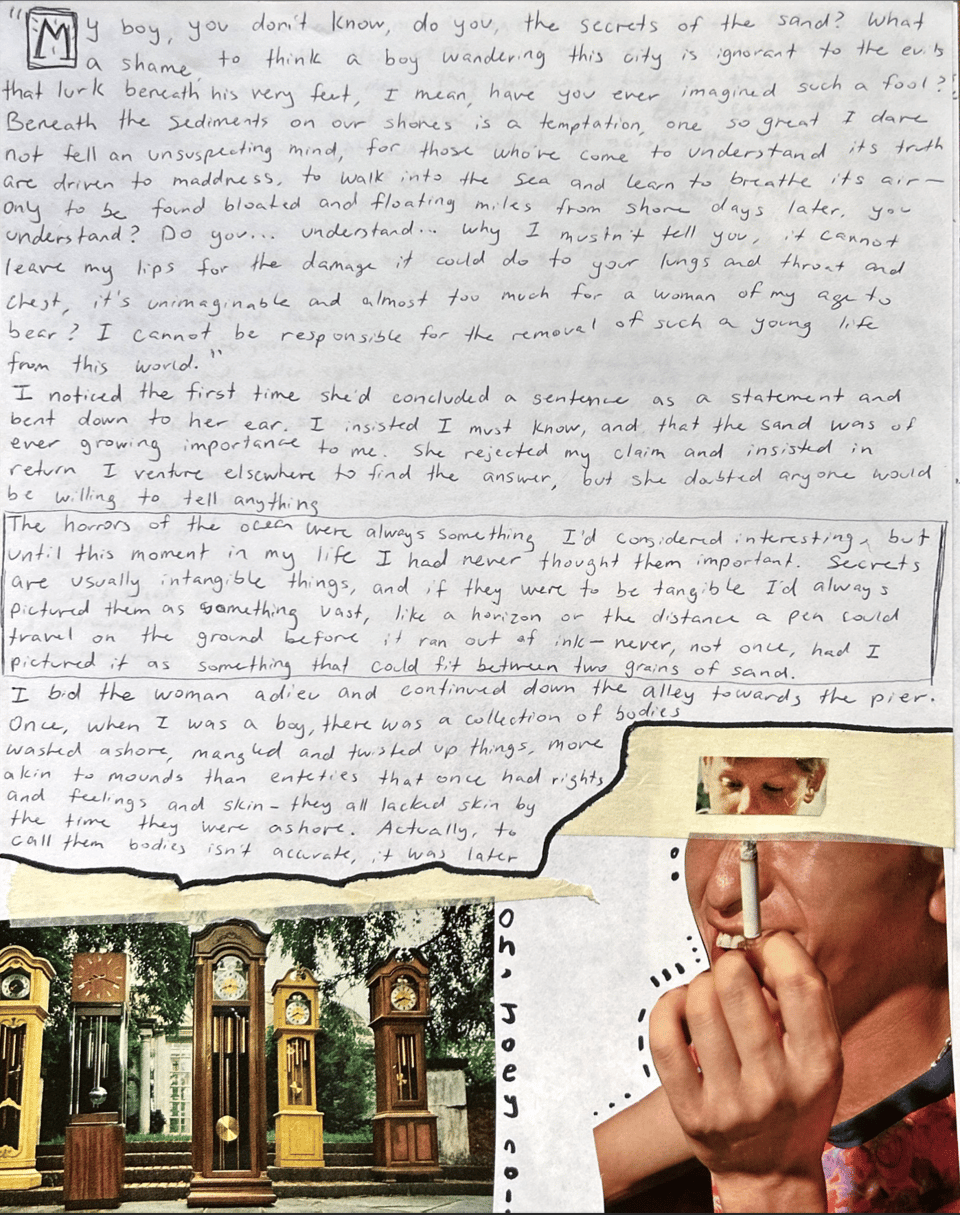 "My boy, you don't know, do you, the secrets of the sand? What
a shame, to think a boy wandering this city is ignorant to the evils
that lurk beneath his very feet, I mean, have you ever imagined such a fool?
Beneath the sediments on our shores is a temptation, one so great I dare
not tell an unsuspecting mind, for those who're come to understand its truth
are driven to maddness, to walk into the sea and learn to breathe its air—
only to be found bloated and floating miles from shore days later, you
understand? Do you... understand... why I mustn't tell you, it cannot
leave my lips for the damage it could do to your lungs and throat and
chest, it's unimaginable and almost too much for a woman of my age to
bear? I cannot be responsible for the removal of such a young life
from this world."
I noticed the first time she'd concluded a sentence as a statement and
bent down to her ear. I insisted I must know, and that the sand was of
ever growing importance to me. She rejected my claim and insisted in
return I venture elsewhere to find the answer, but she doubted anyone would
be willing to tell anything
The horrors of the ocean were always something I'd considered interesting, but
until this moment in my life I had never thought them important. Secrets
are usually intangible things, and if they were to be tangible I'd always
pictured them as something vast, like a horizon or the distance a pen could
travel on the ground before it ran out of ink—never, not once, had I
pictured it as something that could fit between two grains of sand.
I bid the woman adieu and continued down the alley towards the pier.
Once, when I was a boy, there was a collection of bodies
washed ashore, mangled and twisted up things, more
akin to mounds than enteties that once had rights
and feelings and skin—they all lacked skin by
the time they were ashore. Actually, to
call them bodies isn't accurate, it was later
Oh, Joey no!